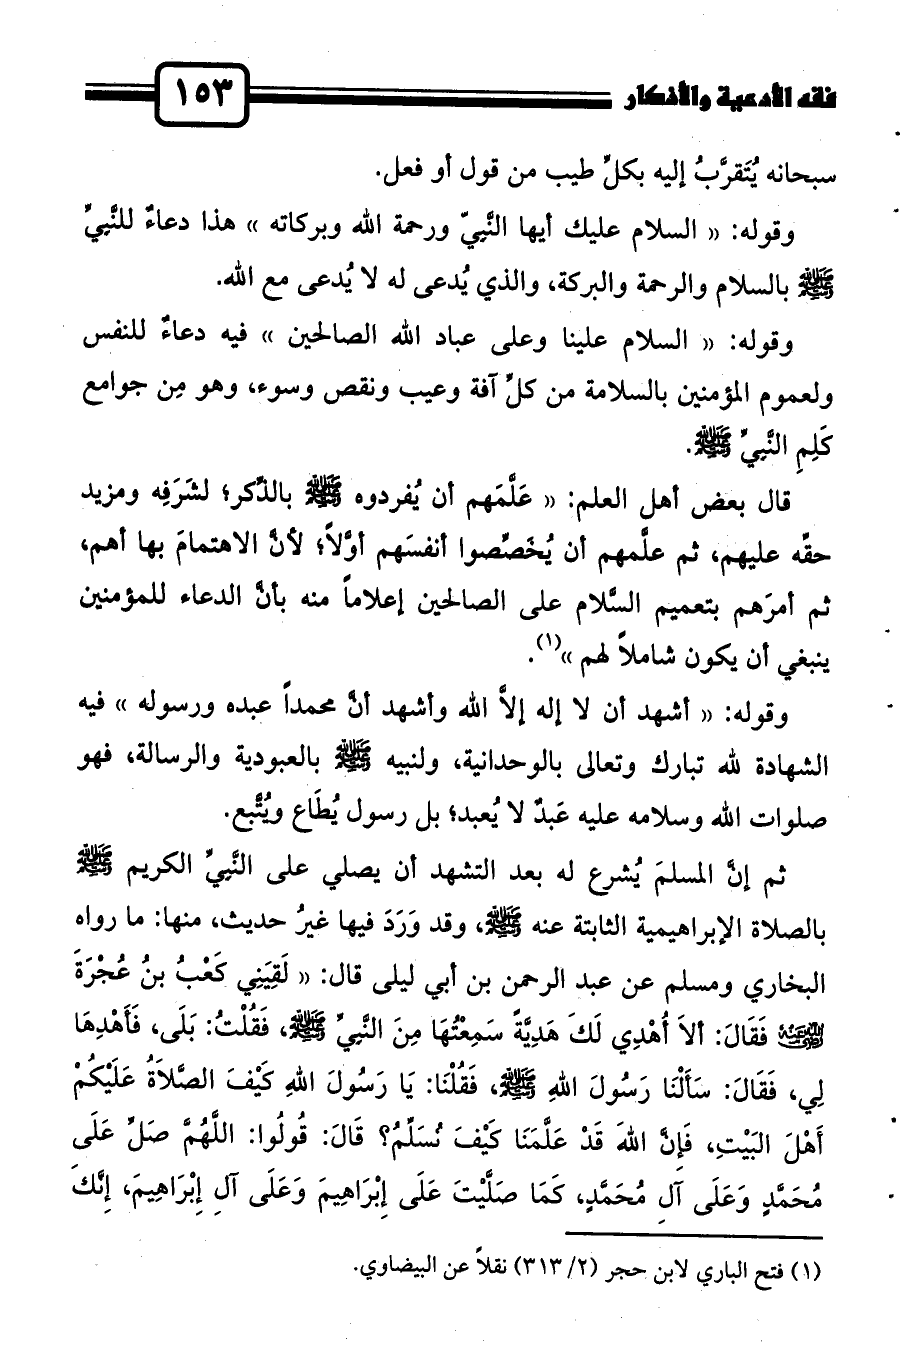 فقه الأدعية والأذكار
١٥٣
سبحانه يُتَقرَّبُ إليه بكلِّ طيب من قول أو فعل.
وقوله: « السلام عليك أيها النَّبِيّ ورحمة الله وبركاته » هذا دعاءٌ للنَّبِيِّ
ﷺ بالسلام والرحمة والبركة، والذي يُدعى له لا يُدعى مع الله.
وقوله: « السلام علينا وعلى عباد الله الصالحين » فيه دعاءٌ للنفس
ولعموم المؤمنين بالسلامة من كلِّ آفة وعيب ونقص وسوء، وهو مِن جوامع
كَلِمِ النَّبِيِّ ﷺ.
قال بعض أهل العلم: « عَلَّمَهم أن يُفردوه ﷺ بالذِّكر؛ لشَرَفِه ومزيد
حقِّه عليهم، ثم علَّمهم أن يُخَصِّصوا أنفسَهم أوَّلاً؛ لأنَّ الاهتمامَ بها أهم،
ثم أمرَهم بتعميم السَّلام على الصالحين إعلاماً منه بأنَّ الدعاء للمؤمنين
ينبغي أن يكون شاملاً لهم »(١).
وقوله: « أشهد أن لا إله إلاَّ الله وأشهد أنَّ محمداً عبده ورسوله » فيه
الشهادة لله تبارك وتعالى بالوحدانية، ولنبيه ﷺ بالعبودية والرسالة، فهو
صلوات الله وسلامه عليه عَبدٌ لا يُعبد؛ بل رسول يُطَاع ويُتَّبع.
ثم إنَّ المسلمَ يُشرع له بعد التشهد أن يصلي على النَّبِيِّ الكريم ﷺ
بالصلاة الإبراهيمية الثابتة عنه ﷺ، وقد وَرَدَ فيها غيرُ حديث، منها: ما رواه
البخاري ومسلم عن عبد الرحمن بن أبي ليلى قال: « لَقِيَنِي كَعْبُ بنُ عُجْرَةَ
رضي الله عنه فَقَالَ: ألاَ أُهْدِي لَكَ هَدِيَّةً سَمِعْتُهَا مِنَ النَّبِيِّ ﷺ، فَقُلْتُ: بَلَى، فَأَهْدِهَا
لِي، فَقَالَ: سَأَلْنَا رَسُولَ اللهِ ﷺ، فَقُلْنَا: يَا رَسُولَ اللهِ كَيْفَ الصَّلاَةُ عَلَيْكُمْ
أَهْلَ البَيْتِ، فَإِنَّ اللهَ قَدْ عَلَّمَنَا كَيْفَ نُسَلِّمُ؟ قَالَ: قُولُوا: اللَّهُمَّ صَلِّ عَلَى
مُحَمَّدٍ وَعَلَى آلِ مُحَمَّدٍ، كَمَا صَلَّيْتَ عَلَى إِبْرَاهِيمَ وَعَلَى آلِ إِبْرَاهِيمَ، إِنَّكَ
(١) فتح الباري لابن حجر (٢/ ٣١٣) نقلاً عن البيضاوي.